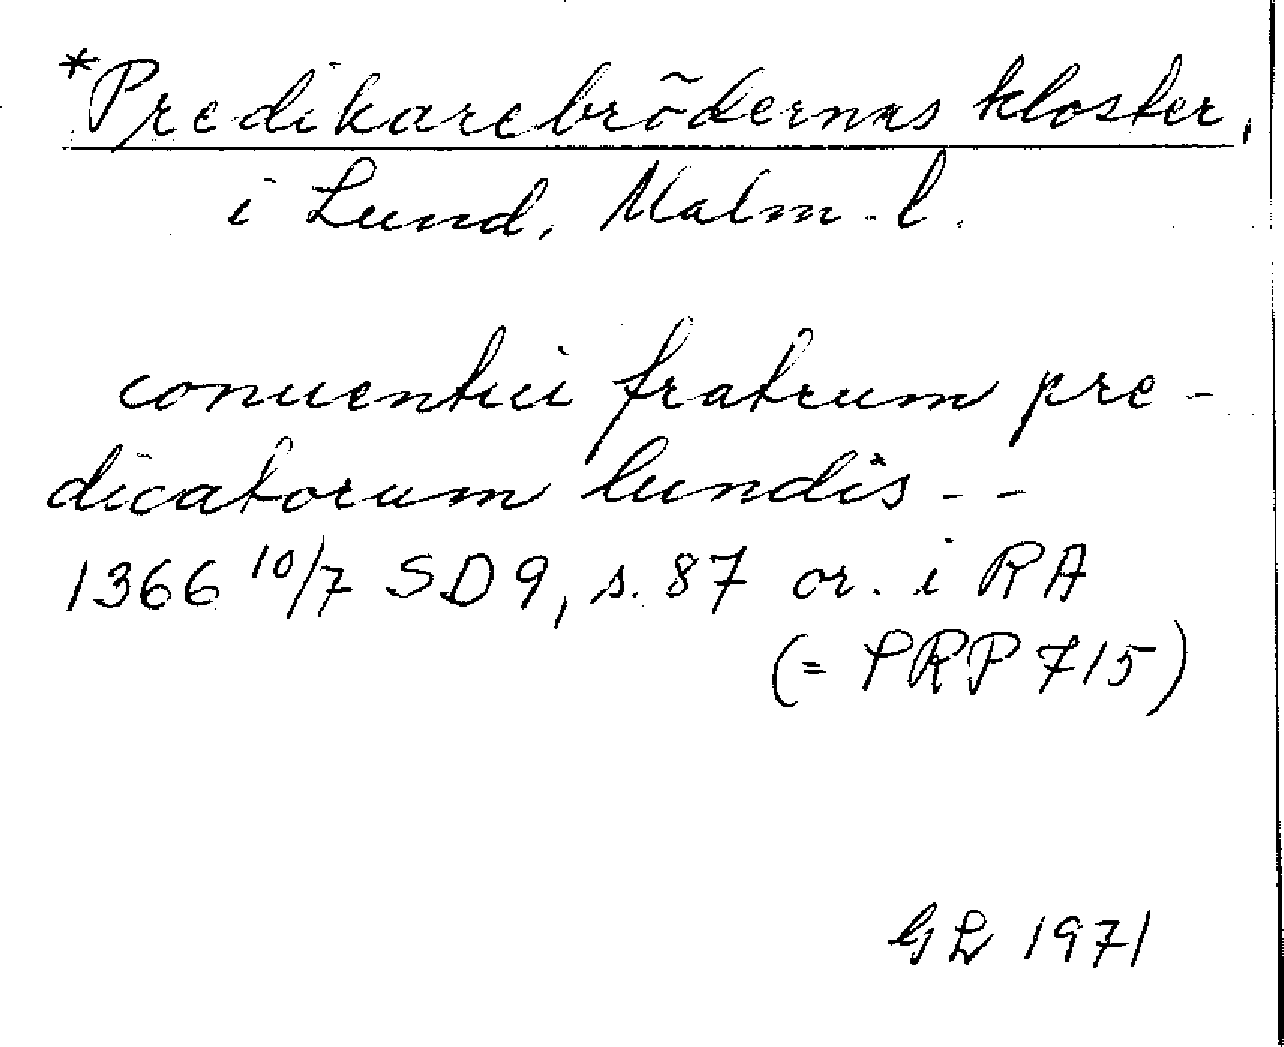 *Predikarebrödernas kloster,
i Lund, Malm. l.
conuentui fratrum pre-
dicatorum lundis - -
1366 10/7 SD 9, s. 87 or. i RA
(= PRP 715)
GL 1971